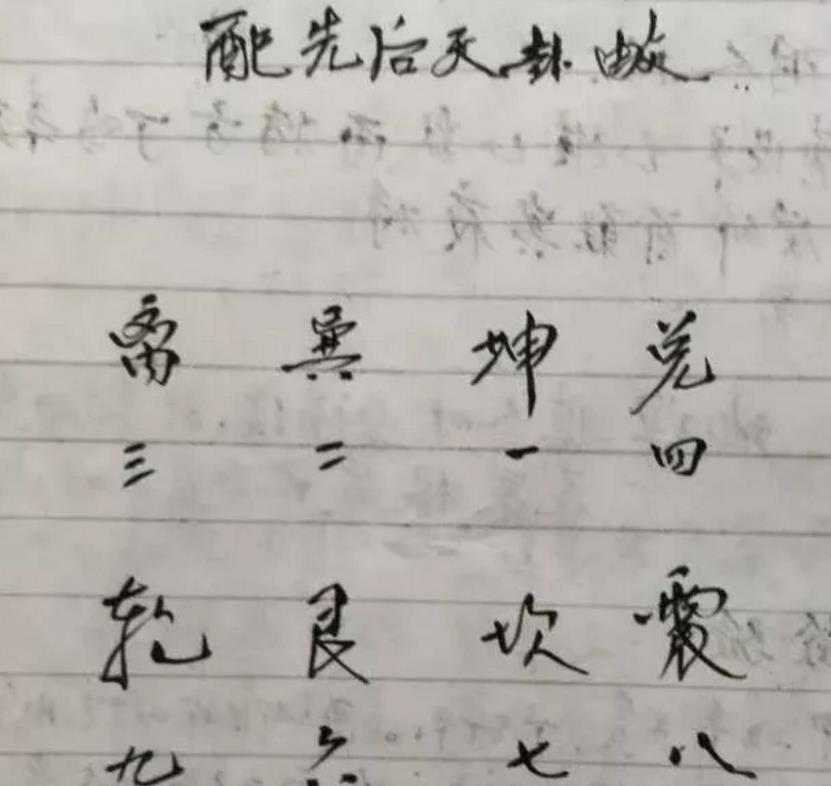 配先后天卦
离 巽 坤 兑
三 二 一 四
乾 艮 坎 震
九 六 七 八